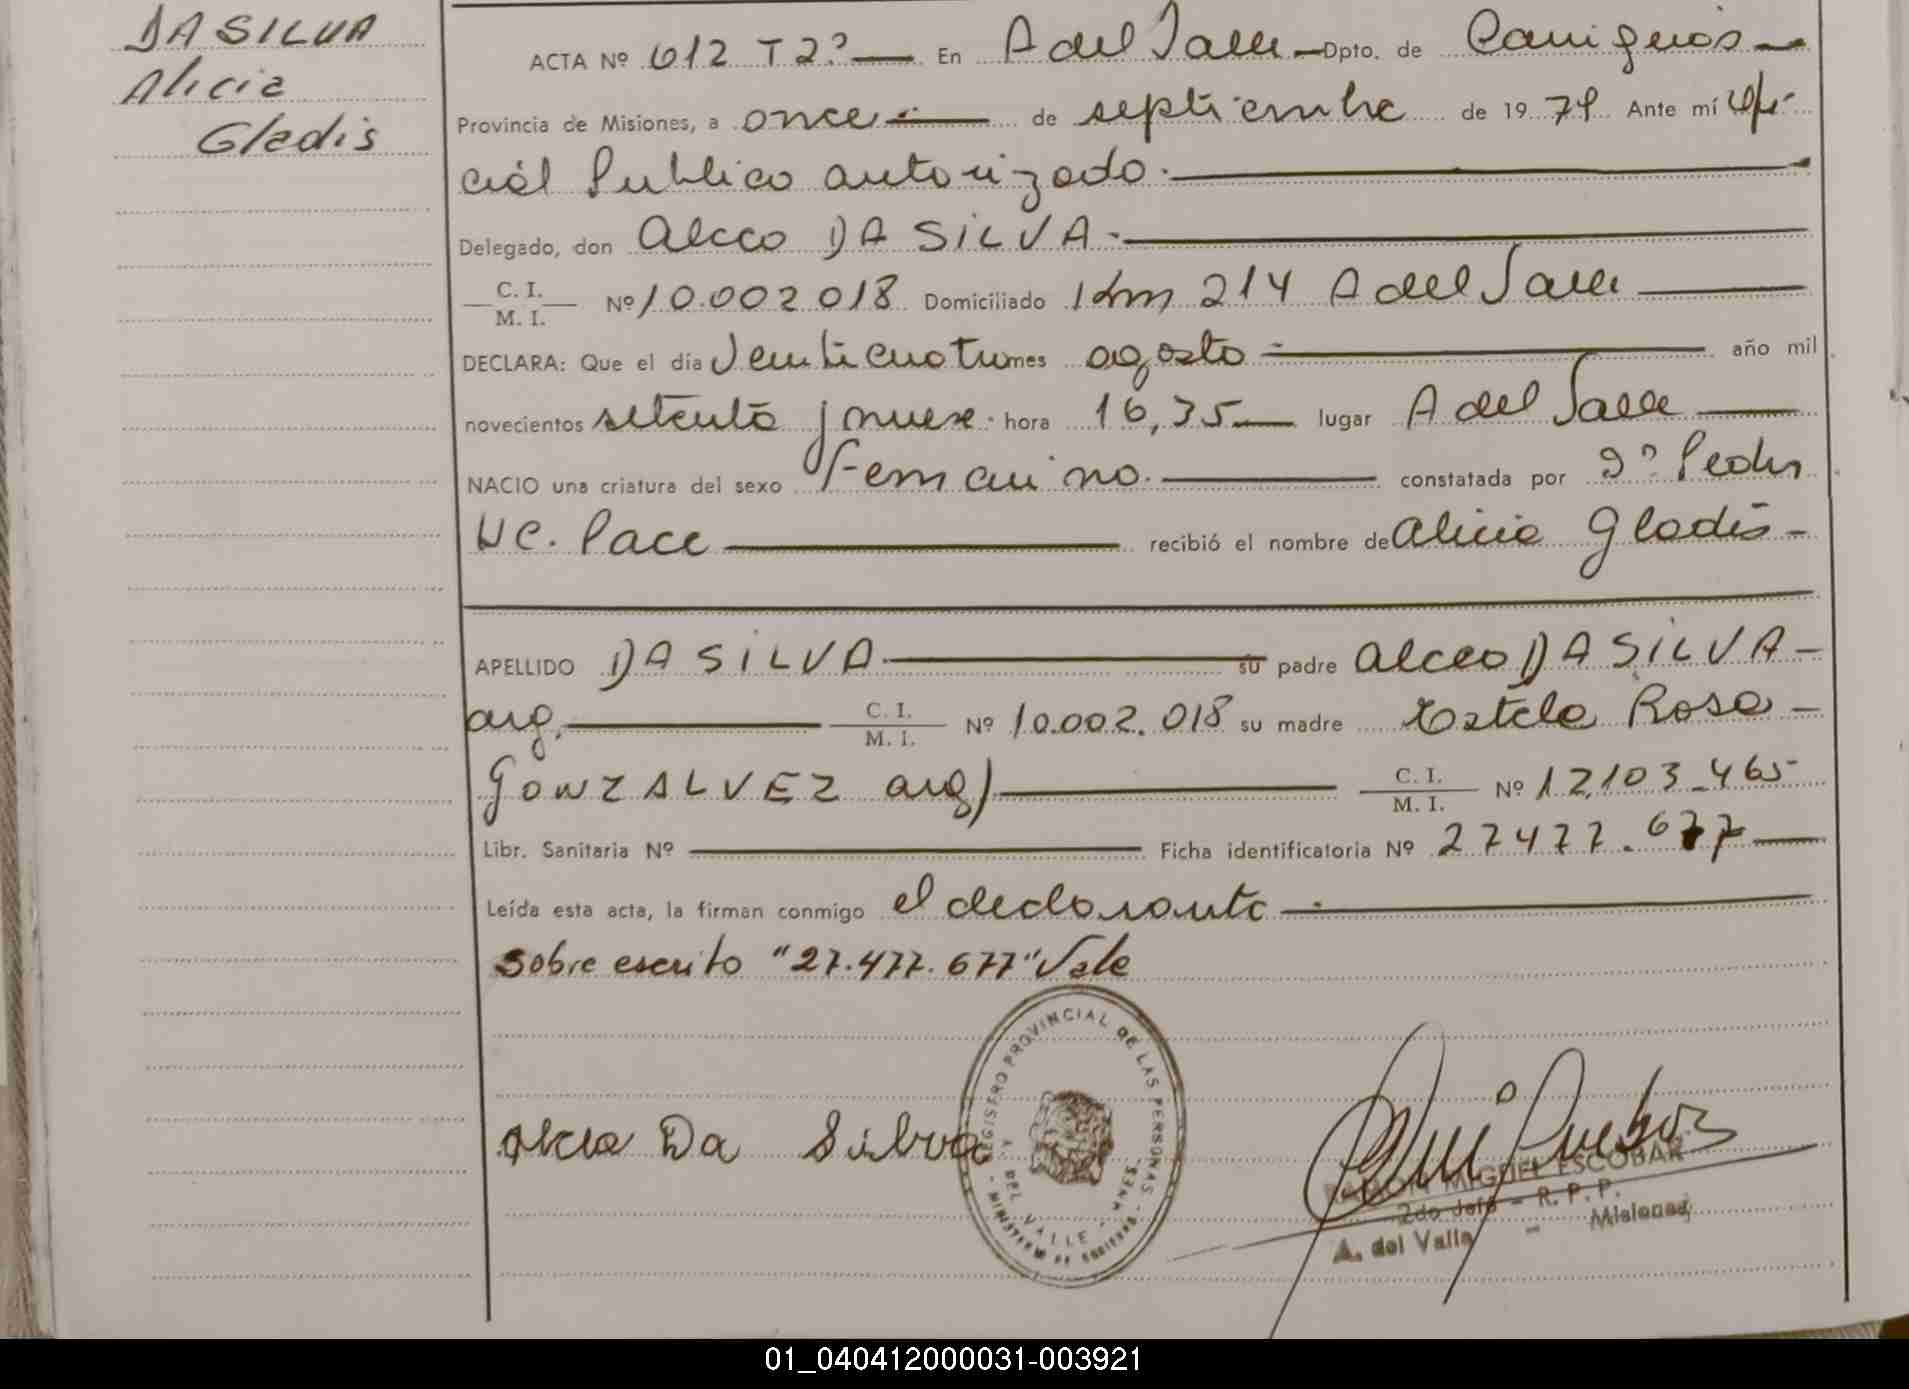 DA SILVA
Alicia
Gladis
ACTA Nº 612 T 2º — En A del Valle — Dpto. de Cainguás —
Provincia de Misiones, a once — de septiembre de 1979 Ante mí Ofi-
cial Publico autorizado. —
Delegado, don Alceo DA SILVA. —
C. I. / M. I. Nº 10.002.018 Domiciliado Km 214 A del Valle —
DECLARA: Que el día Venticuatro mes agosto — año mil
novecientos setenta y nueve hora 16,35 — lugar A del Valle —
NACIO una criatura del sexo Femenino. — constatada por Dº Pedro
Pace — recibió el nombre de Alicia Gladis —
APELLIDO DA SILVA — su padre Alceo DA SILVA —
arg. — C. I. / M. I. Nº 10.002.018 su madre Estela Rosa —
GONZALVEZ arg) — C. I. / M. I. Nº 12.103.465
Libr. Sanitaria Nº — Ficha identificatoria Nº 27477.677 —
Leída esta acta, la firman conmigo el declarante —
Sobre escrito "27.477.677" Vale
Alceo Da Silva
REGISTRO PROVINCIAL DE LAS PERSONAS - MISIONES - MINISTERIO DE GOBIERNO
A DEL VALLE
RAMON MIGUEL ESCOBAR
2do Jefe - R. P. P.
A. del Valle - Misiones
01_040412000031-003921